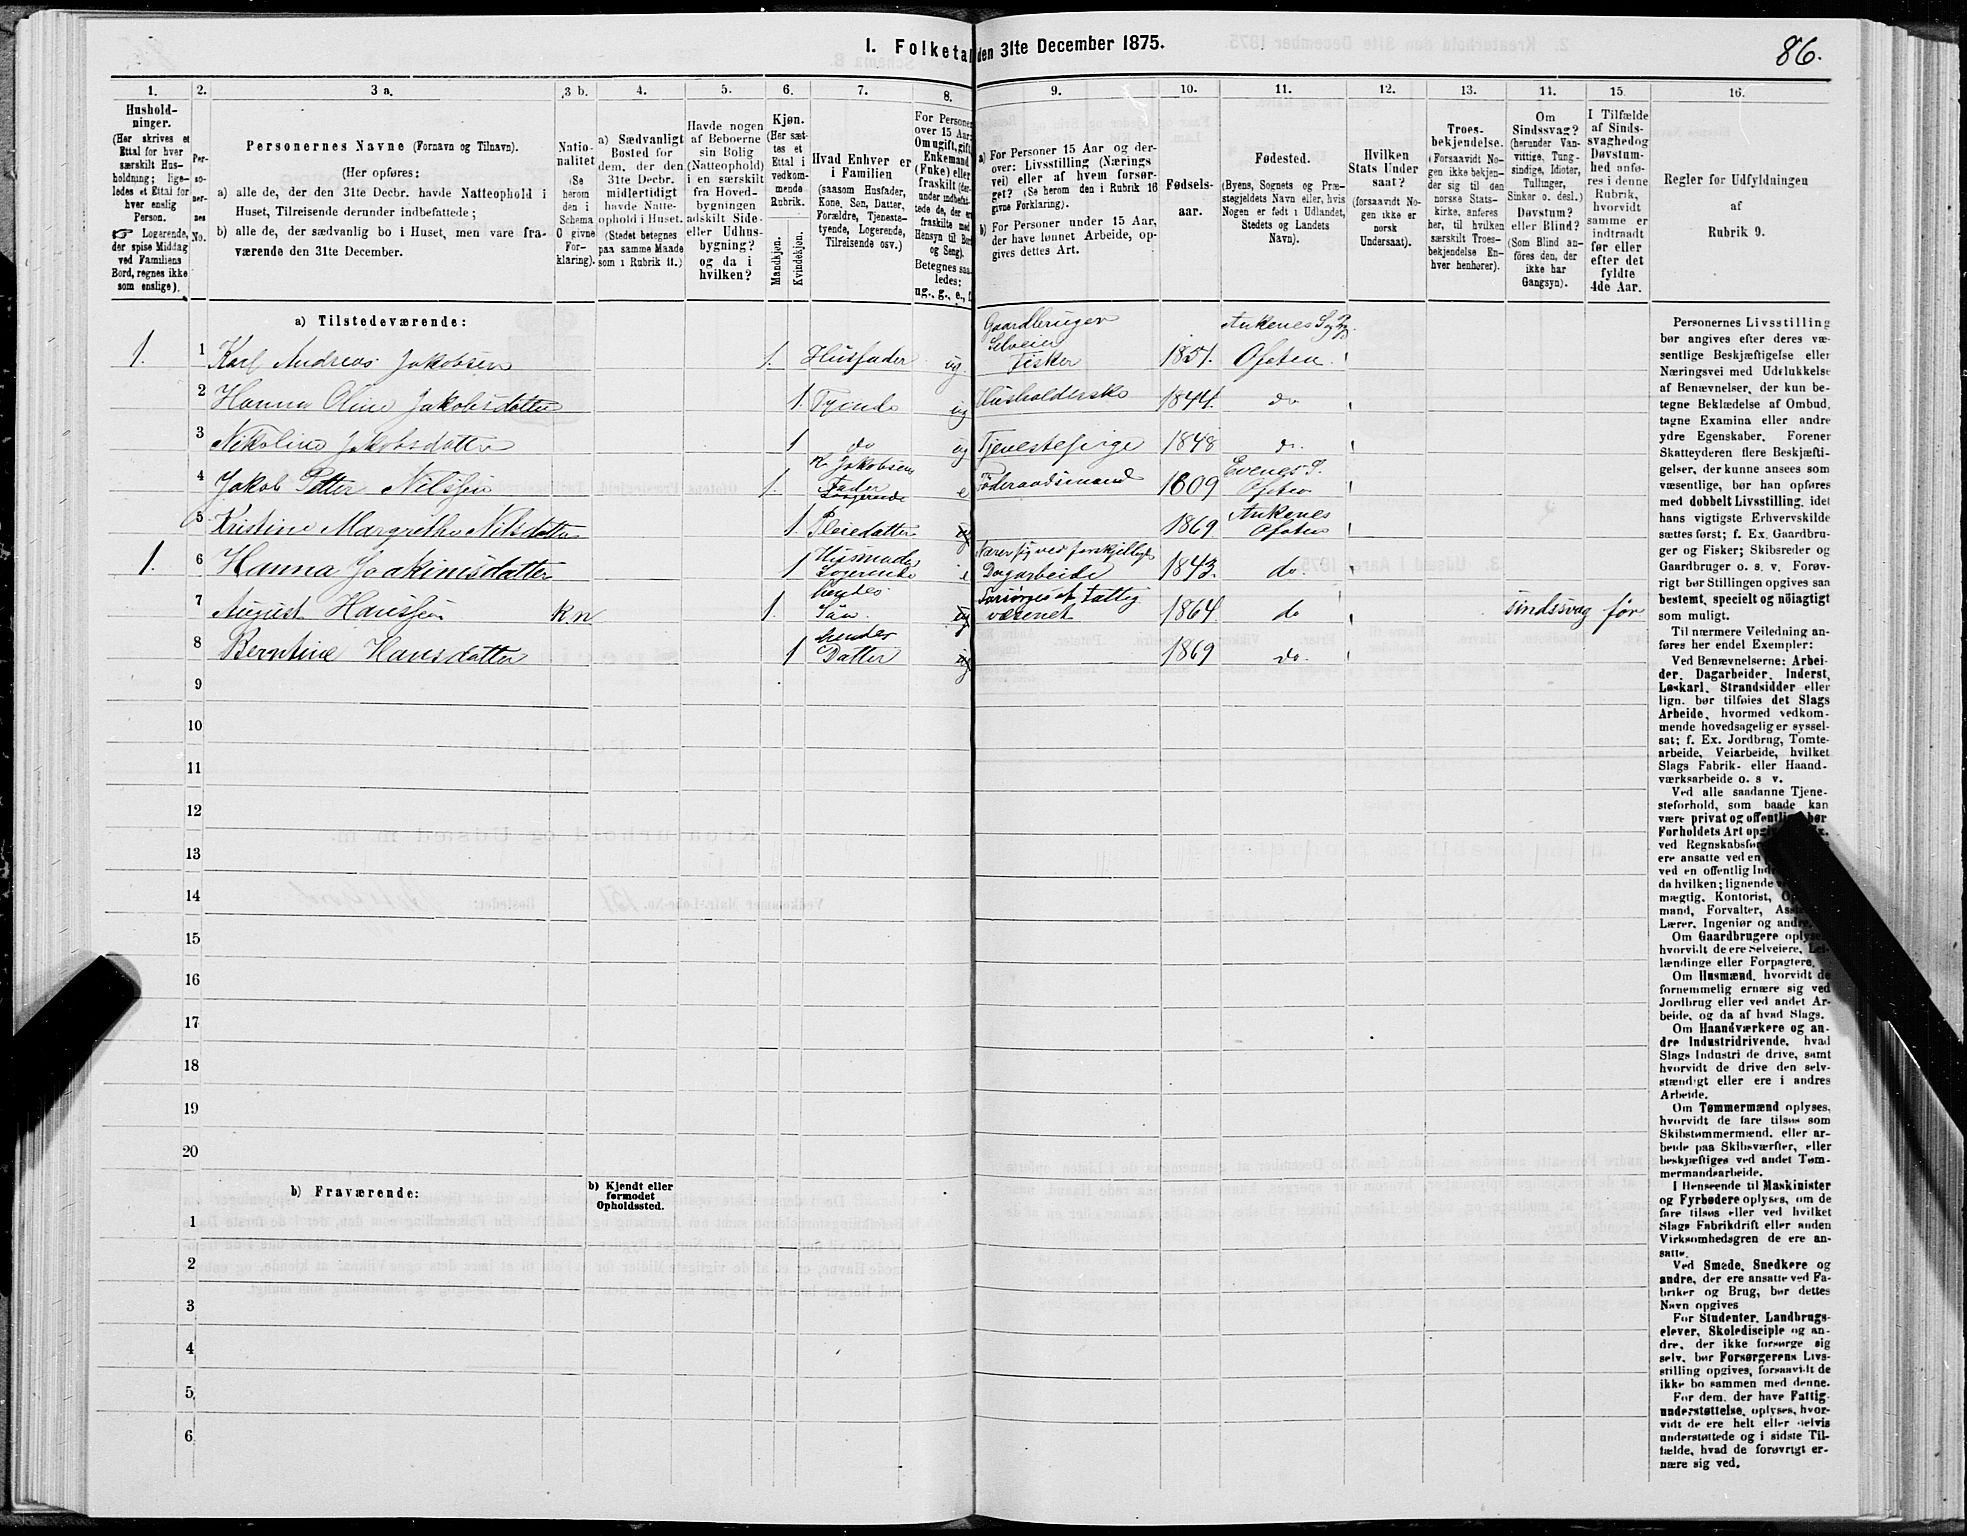 1. Folketal den 31te December 1875.
86.
1.
2.
3 a.
3 b.
4.
5.
6.
7.
8.
9.
10.
11.
12.
13.
11.
15.
16.
Hushold-
ninger.
(Her skrives et
Ettal for hver
særskilt Hus-
holdning; lige-
ledes et Ettal for
hver enslig
Person.
☞ Logerende,
der spise Middag
ved Familiens
Bord, regnes ikke
som enslige).
Per-
so-
ner-
nes
No.
Personernes Navne (Fornavn og Tilnavn).
(Her opføres:
a) alle de, der den 31te Decbr. havde Natteophold i
Huset, Tilreisende derunder indbefattede;
b) alle de, der sædvanlig bo i Huset, men vare fra-
værende den 31te December.
Natio-
nalitet
(Se
herom
den i
Schema
C givne
For-
klaring).
a) Sædvanligt
Bosted for
dem, der den
31te Decbr.
midlertidigt
havde Natte-
ophold i Huset.
(Stedet betegnes
paa samme Maade
som i Rubrik 11.)
Havde nogen
af Beboerne
sin Bolig
(Natteophold)
i en særskilt
fra Hoved-
bygningen
adskilt Side-
eller Udhus-
bygning?
og da i
hvilken?
Kjøn.
(Her sæt-
tes et
Ettal i
vedkom-
mende
Rubrik.
Mandkjøn.
Kvindekjøn.
Hvad Enhver er
i Familien
(saasom Husfader,
Kone, Søn, Datter,
Forældre, Tjeneste-
tyende, Logerende,
Tilreisende osv.)
For Personer
over 15 Aar:
Om ugift, gift,
Enkemand
(Enke) eller
fraskilt (der-
under indbefat-
tede de, der er
fraskilte med
Hensyn til Bord
og Seng).
Betegnes saa-
ledes:
ug., g., e., f.
a) For Personer 15 Aar og der-
over: Livsstilling (Nærings
vei) eller af hvem forsør-
get? (Se herom den i Rubrik 16
givne Forklaring).
b) For Personer under 15 Aar,
der have lønnet Arbeide, op-
gives dettes Art.
Fødsels-
aar.
Fødested.
(Byens, Sognets og Præ-
stegjeldets Navn eller, hvis
Nogen er født i Udlandet,
Stedets og Landets
Navn).
Hvilken
Stats Under
saat?
(forsaavidt No-
gen ikke er
norsk
Undersaat).
Troes-
bekjendelse.
(Forsaavidt No-
gen ikke bekjen-
der sig til den
norske Stats-
kirke, anføres
her, til hvilken
særskilt Troes-
bekjendelse En-
hver henhører).
Om
Sindssvag?
(herunder Van-
vittige, Tung-
sindige, Idioter,
Tullinger,
Sinker o. desl.)
Døvstum?
eller Blind?
(Som Blind an-
föres den, der
ikke har
Gangsyn).
I Tilfælde
af Sinds-
svaghedog
Døvstum-
hed anfø-
res i denne
Rubrik,
hvorvidt
samme er
indtraadt
før eller
efter det
fyldte
4de Aar.
Regler for Udfyldningen
af
Rubrik 9.
a) Tilstedeværende:
1. 1 Karl Andreas Jakobsen 1. Husfader ug. Gaardbruger Selveier Fisker 1851. Ankenes S. Ofoten
2 Hanna Oline Jakobsdatter 1. Tyende ug Husholderske 1844. do
3 Nikoline Jakobsdatter 1 do ug Tjenestepige 1848 do.
4 Jakob Petter Nilssen 1. K. Jakobsens Fader Logerende e Föderaadsmand 1809 Evenes S. Ofoten
5 Kristine Margrethe Nilsdatter 1 Pleiedatter ug 1869 Ankenes Ofoten
1. 6 Hanna Joakimsdatter 1 Husmoder Logerende e Nærer sig ved forskjelligt Dagarbeide 1843. do.
7 August Hanssen k.n 1. hendes Sön. ug Forsörges af Fattig væsenet 1864. do sindssvag før
8 Berntine Hansdatter 1 hendes Datter ug 1869 do.
9
10
11
12
13
14
15
16
17
18
19
20
b) Fraværende:
b) Kjendt eller
formodet
Opholdssted.
1
2
3
4
5
6
Personernes Livsstilling
bør angives efter deres væ-
sentlige Beskjæftigelse eller
Næringsvei med Udelukkelse
af Benævnelser, der kun be-
tegne Beklædelse af Ombud,
tagne Examina eller andre
ydre Egenskaber. Forener
Skatteyderen flere Beskjæfti-
gelser, der kunne ansees som
væsentlige, bør han opføres
med dobbelt Livsstilling, idet
hans vigtigste Erhvervskilde
sættes først; f. Ex. Gaardbru-
ger og Fisker; Skibsreder og
Gaardbruger o. s. v. Forøv-
rigt bør Stillingen opgives saa
bestemt, specielt og nöiagtigt
som muligt.
Til nærmere Veiledning an-
føres her endel Exempler:
Ved Benævnelserne: Arbei-
der, Dagarbeider, Inderst,
Løskarl, Strandsidder eller
lign. bør tilføies det Slags
Arbeide, hvormed vedkom-
mende hovedsagelig er syssel-
sat; f. Ex. Jordbrug, Tomte-
arbeide, Veiarbeide, hvilket
Slags Fabrik- eller Haand-
værksarbeide o. s v.
Ved alle saadanne Tjene-
steforhold, som baade kan
være privat og offentlig, bør
Forholdets Art
ved Regnskabsfør
ere ansatte ved en
ved en offentlig
da hvilken; lignende
mægtig, Kontorist,
mand, Forvalter,
Lærer, Ingeniør og andre.
Om Gaardbrugere oplyses,
hvorvidt de ere Selveiere, Lei-
lændinge eller Forpagtere.
Om Husmænd, hvorvidt de
fornemmelig ernære sig ved
Jordbrug eller ved andet Ar-
beide, og da af hvad Slags.
Om Haandværkere og an-
dre Industridrivende, hvad
Slags Industri de drive, samt
hvorvidt de drive den selv-
stændigt eller ere i andres
Arbeide.
Om Tømmermænd oplyses,
hvorvidt de fare tilsøs som
Skibstømmermænd, eller ar-
beide paa Skibsværfter, eller
beskjæftiges ved andet Tøm-
mermandsarbeide.
I Henseende til Maskinister
og Fyrbødere oplyses, om de
fare tilsøs eller ved hvilket
Slags Fabrikdrift eller anden
Virksomhedsgren de ere an-
satte.
Ved Smede, Snedkere og
andre, der ere ansatte ved Fa-
briker og Brug, bør dettes
Navn opgives
For Studenter, Landbrugs-
elever, Skoledisciple og an-
dre, der ikke forsørge sig
selv, bør Forsørgerens Livs-
stilling opgives, forsaavidt de
ikke bo sammen med denne.
For dem, der have Fattig-
understøttelse, oplyses, hvor-
vidt de ere helt eller delvis
understøttede og i sidste Til-
fælde, hvad de forøvrigt er-
nære sig ved.